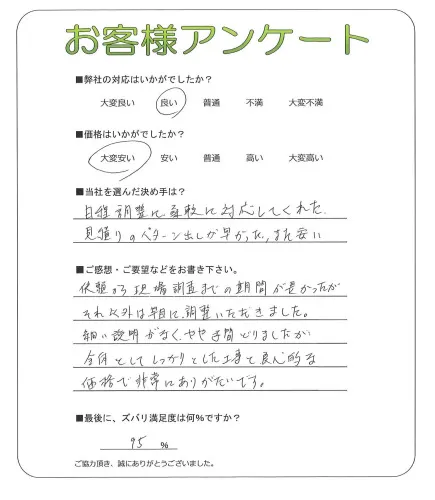 お客様アンケート
■弊社の対応はいかがでしたか？
大変良い 良い 普通 不満 大変不満
■価格はいかがでしたか？
大変安い 安い 普通 高い 大変高い
■当社を選んだ決め手は？
日程調整に柔軟に対応してくれた。
見積りのパターン出しが早かった。また安い
■ご感想・ご要望などをお書き下さい。
依頼から現場調査までの期間が長かったが
それ以外は早目に調整いただきました。
細い説明がなく、やや手間どりましたが
全体としてしっかりとした工事と良心的な
価格で非常にありがたいです。
■最後に、ズバリ満足度は何％ですか？
95 %
ご協力頂き、誠にありがとうございました。